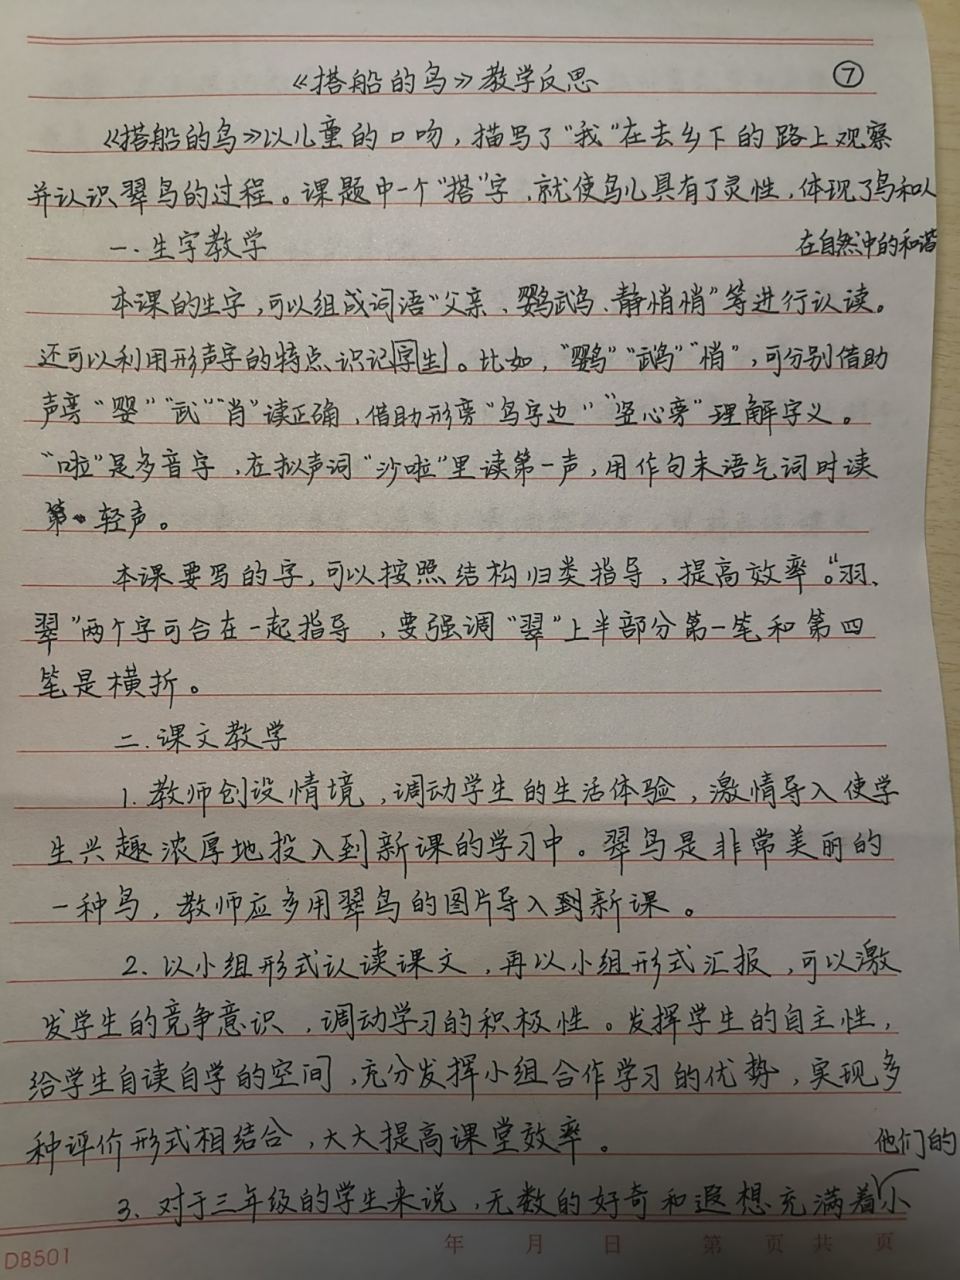 《搭船的鸟》教学反思 ⑦
《搭船的鸟》以儿童的口吻，描写了“我”在去乡下的路上观察
并认识翠鸟的过程。课题中一个“搭”字，就使鸟儿具有了灵性，体现了鸟和人
在自然中的和谐
一.生字教学
本课的生字，可以组成词语“父亲、鹦鹉、静悄悄”等进行认读。
还可以利用形声字的特点识记字生。比如，“鹦”“鹉”“悄”，可分别借助
声旁“婴”“武”“肖”读正确，借助形旁“鸟字边”“竖心旁”理解字义。
“啦”是多音字，在拟声词“沙啦”里读第一声，用作句末语气词时读
轻声。
本课要写的字，可以按照结构归类指导，提高效率。“羽、
翠”两个字可合在一起指导，要强调“翠”上半部分第一笔和第四
笔是横折。
二.课文教学
1.教师创设情境，调动学生的生活体验，激情导入使学
生兴趣浓厚地投入到新课的学习中。翠鸟是非常美丽的
一种鸟，教师应多用翠鸟的图片导入到新课。
2.以小组形式认读课文，再以小组形式汇报，可以激
发学生的竞争意识，调动学习的积极性。发挥学生的自主性，
给学生自读自学的空间，充分发挥小组合作学习的优势，实现多
种评价形式相结合，大大提高课堂效率。
他们的
3.对于三年级的学生来说，无数的好奇和遐想充满着小
DB501 年 月 日 第 页 共 页